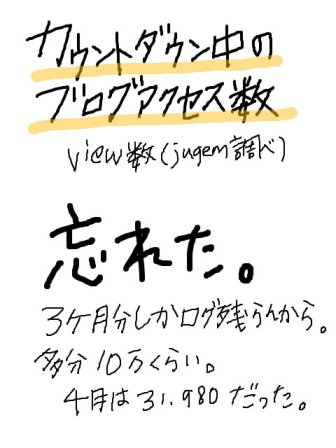 カウントダウン中の
ブログアクセス数
view数(jugem調べ)
忘れた。
3ヶ月分しかログ残らんから。
多分10万くらい。
4月は31,980だった。